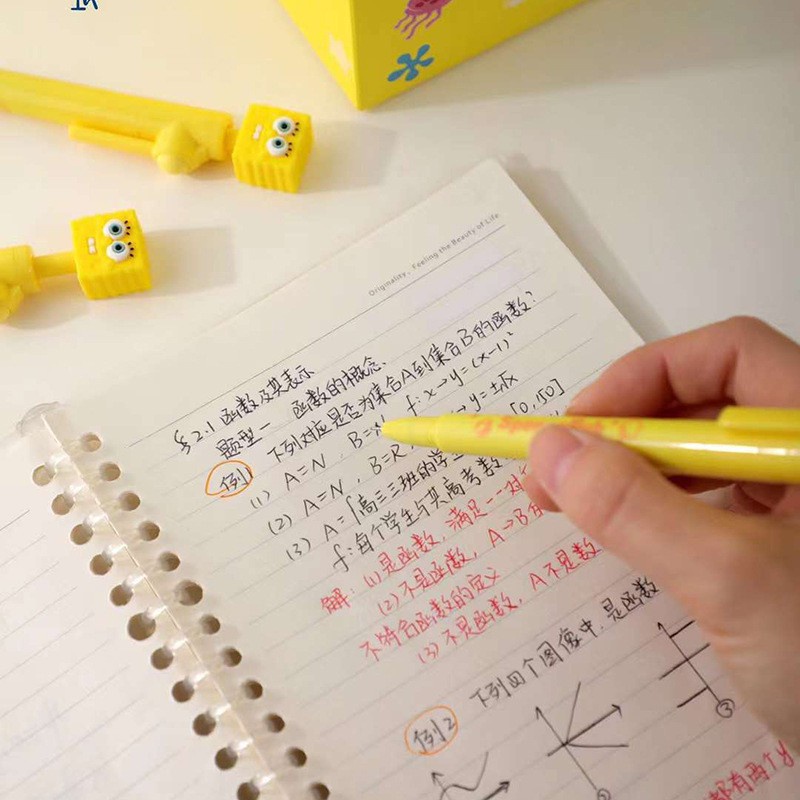 Originality, Feeling the Beauty of Life
§2.1 函数及其表示
题型一 函数的概念、
例1 下列对应是否为集合A到集合B的函数?
(1) A=N, B= f:x→y=(x-1)²
(2) A=N, B=R, →y=±√x
(3) A={高三三班的学生 [0,150]
f:每个学生与其高考数
解: (1)是函数, 满足一一对
(2)不是函数, A→B
不符合函数的定义
(3)不是函数, A不是数
例2 下列四个图像中,是函数
③
都有两个y